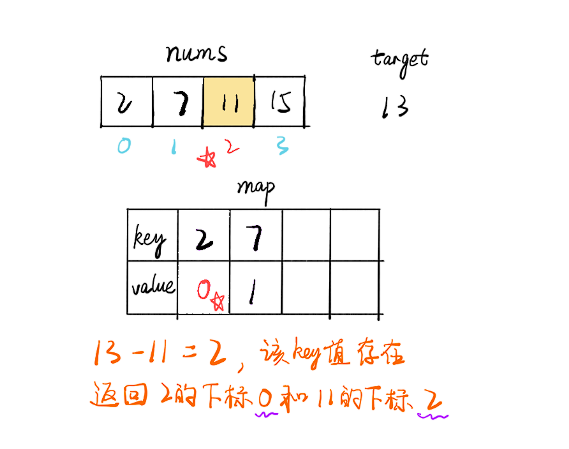 nums target
2 7 11 15 13
0 1 2 3
map
key 2 7
value 0 1
13-11=2，该key值存在
返回2的下标0和11的下标2